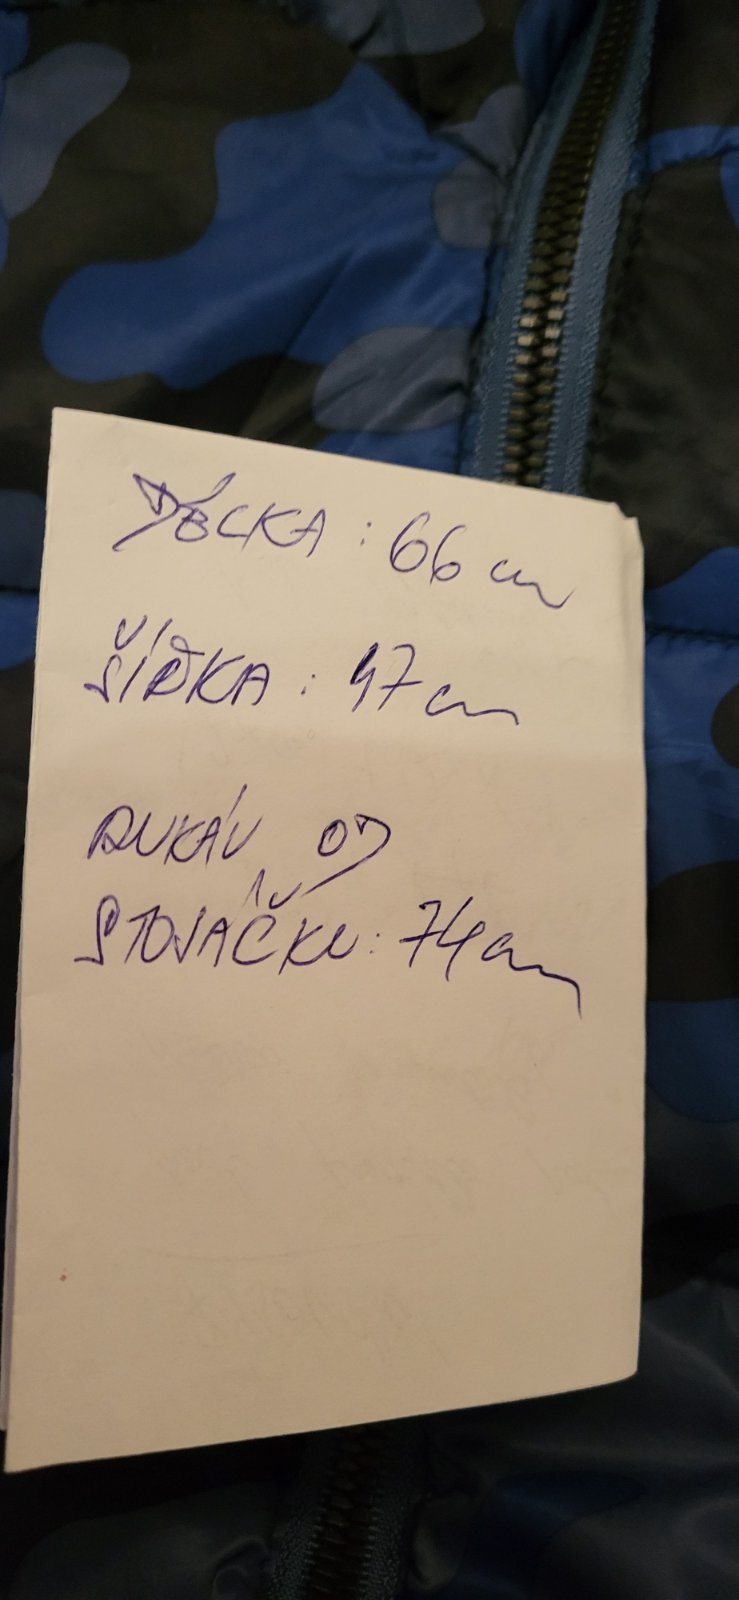 DÉLKA : 66 cm
ŠÍŘKA : 47 cm
RUKÁV OD
STOJÁČKU : 74 cm